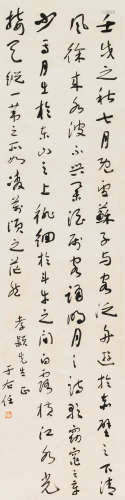 壬戌之秋七月既望蘇子与客泛舟遊於赤壁之下清
風徐來水波不興舉酒屬客誦明月之詩歌窈窕之章
少焉月出於東山之上徘徊於斗牛之間白露橫江水光
接天縱一葦之所如凌萬頃之茫然
孝穎先生正
于右任